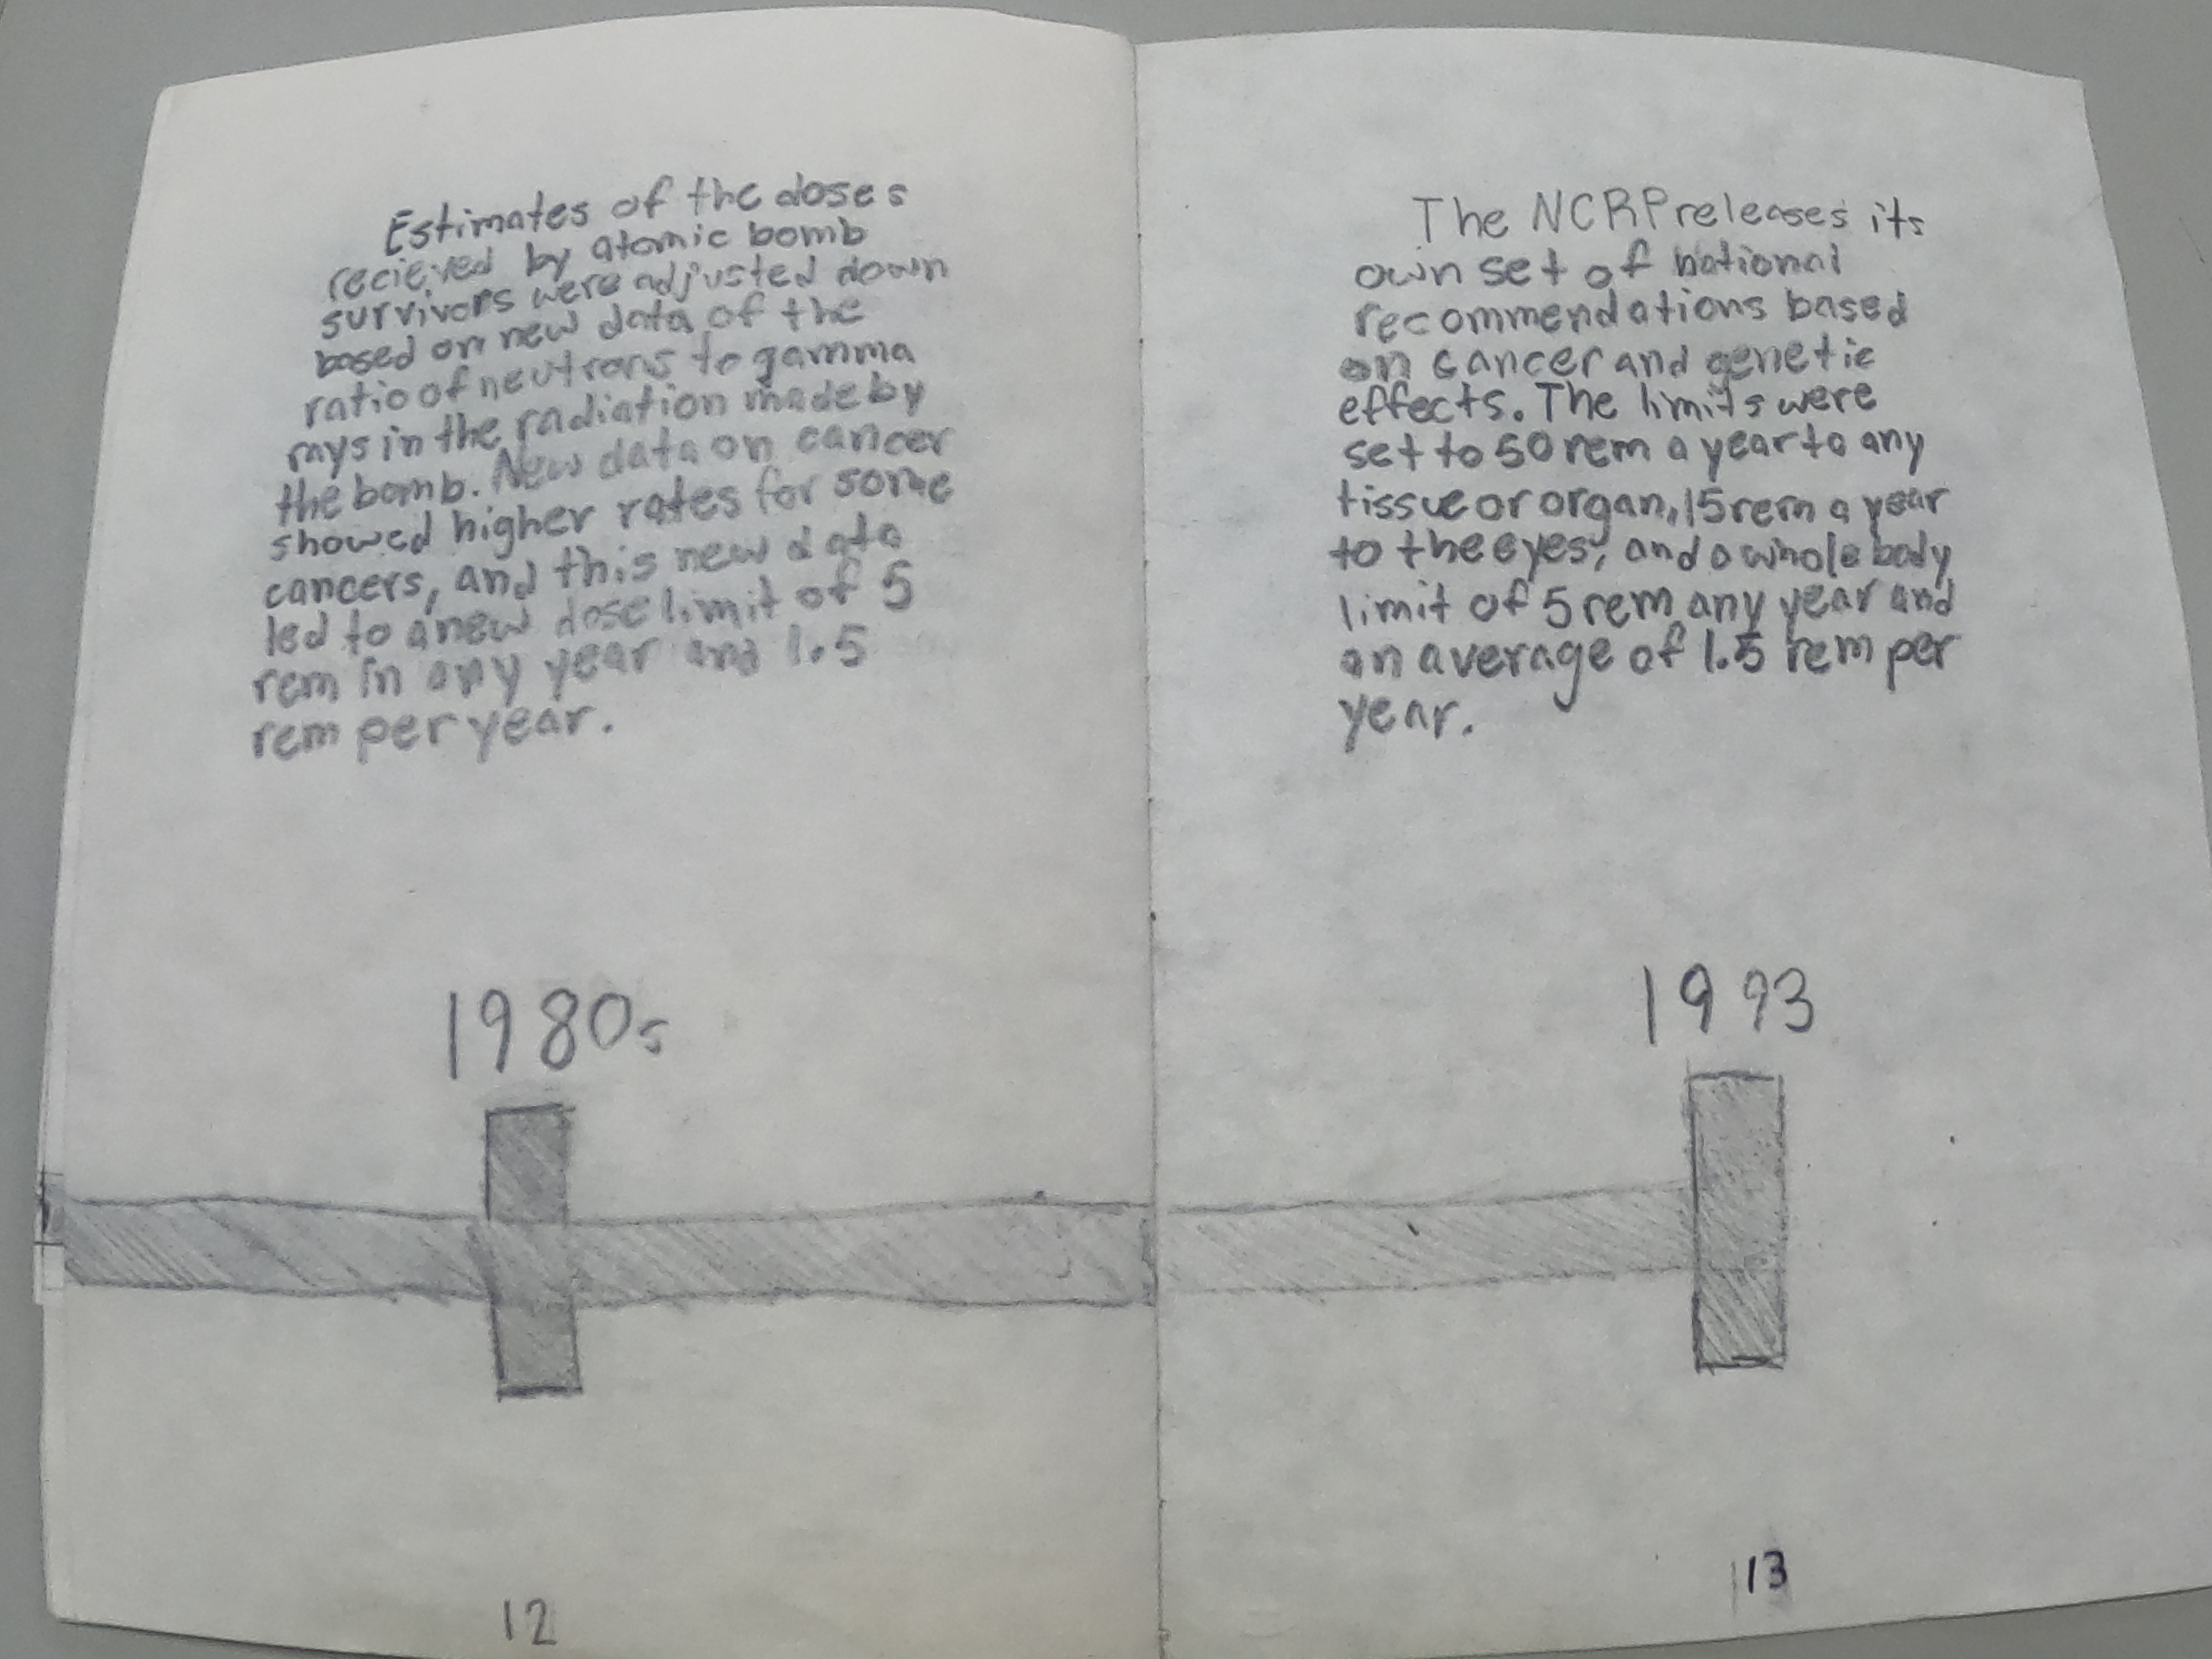 Estimates of the doses
recieved by atomic bomb
survivors were adjusted down
based on new data of the
ratio of neutrons to gamma
rays in the radiation made by
the bomb. New data on cancer
showed higher rates for some
cancers, and this new data
led to a new dose limit of 5
rem in any year and 1.5
rem per year.
1980s
12
The NCRP releases its
own set of national
recommendations based
on cancer and genetic
effects. The limits were
set to 50 rem a year to any
tissue or organ, 15 rem a year
to the eyes, and a whole body
limit of 5 rem any year and
an average of 1.5 rem per
year.
1993
13